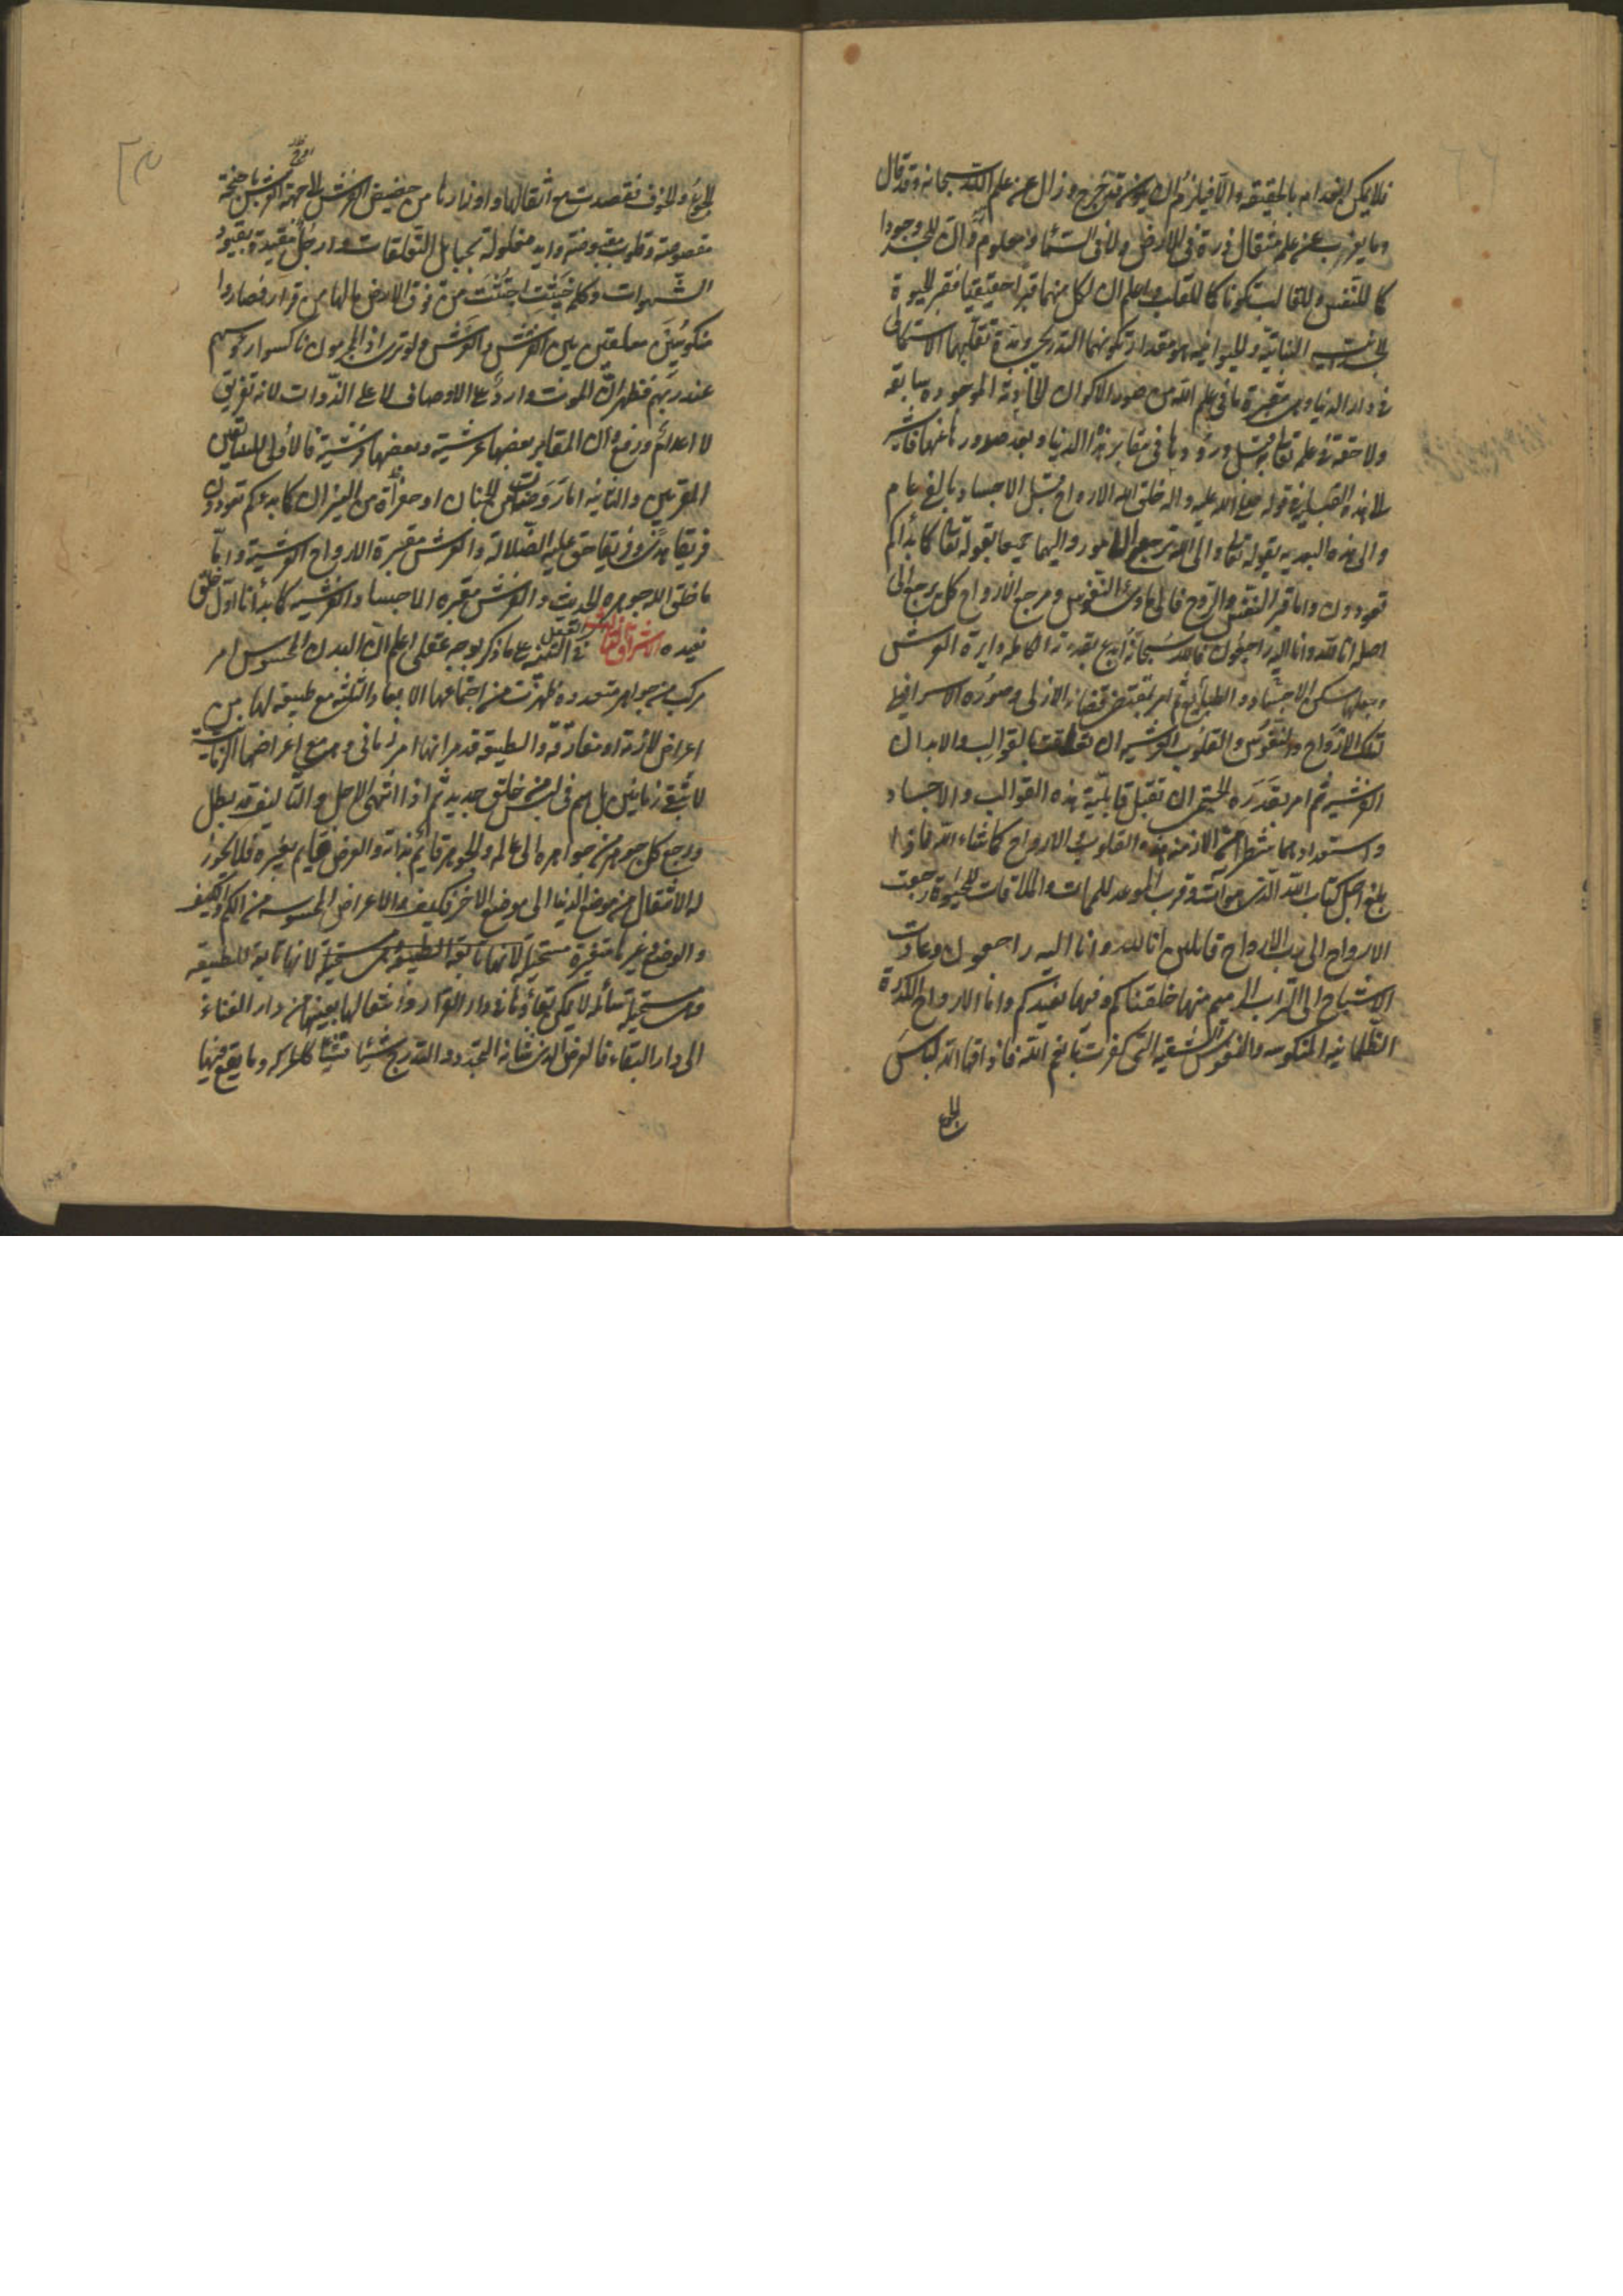 فلا يمكن انعدامه بالحقيقة والا فيلزم ان يكون قد خرج وزال عن علم الله سبحانه وقد قال
وما يعزب عن علمه مثقال ذرة في الارض ولا في السماء ومعلوم ان للجسد وجودا
كما للنفس وللقالب كونا كما للقلب واعلم ان لكل منهما قبرا حقيقيا فقبر الحيوة
الجسدية النباتية والحيوانية هو مقدار تكونهما التدريجي ومدة تقلبهما الاستكمالي
في دار الدنيا وهي مقبرة ما في علم الله من صور الاكوان الحادثة الموجودة سابقة
ولاحقة في علمه تعالى قبل ورودها في مقابر هذا الدنيا وبعد صدورها عنها فاشير
الى هذه القبلية في قوله صلى الله عليه واله خلق الله الارواح قبل الاجساد بالفي عام
والى هذه البعدية بقوله تعالى والى الله ترجع الامور واليهما جميعا بقوله تعالى كما بدأكم
تعودون واما قبر النفس والروح فالى ماوى النفوس ومرجع الارواح كل يرجع الى
اصله انا لله وانا اليه راجعون فالله سبحانه ابدع بقدرته الكاملة دايرة العرش
وجعلها مسكن الاجساد والطبايع ثم امر بمقتضى قضائه الازلي وصوره الاسرافيلي
تلك الارواح والنفوس والقلوب العرشية ان تعلقت بالقوالب والابدان
الفرشية ثم امر بقدره الحتمي ان تقبل قابلية هذه القوالب والاجساد
واستعدادهما شطرا من الازمنة هذه القلوب والارواح كما شاء الله فاذا
بلغ اجل كتاب الله الذي هو آت وقرب الموعد للممات والملاقات للحيوة رجعت
الارواح الى رب الارواح قائلين انا لله وانا اليه راجعون وعادت
الاشباح الى التراب الرميم منها خلقناكم وفيها نعيدكم واما الارواح الكدرة
الظلمانية المنكوسة والنفوس الشقية التي كفرت بانعم الله فاذاقها الله لباس
الجوع
الجوع والخوف فقصدت مع اثقالها واوزارها من حضيض الفرش الى جهة العرش باجنحة
مقصوصة وقلوب مقبوضة وايد مغلولة بحبايل التعلقات وارجل مقيدة بقيود
الشهوات وكلمة خبيثة اجتثت من فوق الارض مالها من قرار فصاروا
منكوسين معلقين بين الفرش والعرش ولو ترى اذ المجرمون ناكسوا رؤسهم
عند ربهم فظهر ان الموت وارد على الاوصاف لا على الذوات لانه تفريق
لا اعدام ورفع وان المقابر بعضها عرشية وبعضها فرشية فالاولى للسابقين
المقربين والثانية اما روضة من رياض الجنان او حفرة من النيران كما بدءكم تعودون
فريقا هدى وفريقا حق عليه الضلالة والعرش مقبرة الارواح العرشية واول
ما خلق الله جوهرة الحديث والفرش مقبرة الاجساد الفرشية كما بدأنا اول خلق
نعيده الاشراق الثالث في التنبيه على ما ذكر بوجه عقلي اعلم ان البدن المحسوس امر
مركب من جواهر متعددة ظهرت من اجتماعها الابعاد الثلثة مع طبيعة لها من
اعراض لازمة او مفارقة والطبيعة قد مر انها امر زماني وهي مع اعراضها الزمانية
لا تبقى زمانين بل هم في لبس من خلق جديد ثم اذا انتهى الاجل والتاليف قد بطل
ورجع كل جوهر من جواهره الى عالمه والجوهر قائم بذاته والعرض قايم بغيره فلا يجوز
له الانتقال من موضع الدنيا الى موضع الاخر فكيف والاعراض المحسوسة من الكم والكيف
والوضع وغيرها متغيرة مستحيلة لانها تابعة للطبيعة
وهي مستحيلة سائلة لا يمكن بقاؤها في دار القرار وانتقالها بعينها من دار الفناء
الى دار البقاء فالعرض الذي شانه التجدد والتدريج شيئا فشيئا كالحركة وما يقع فيها